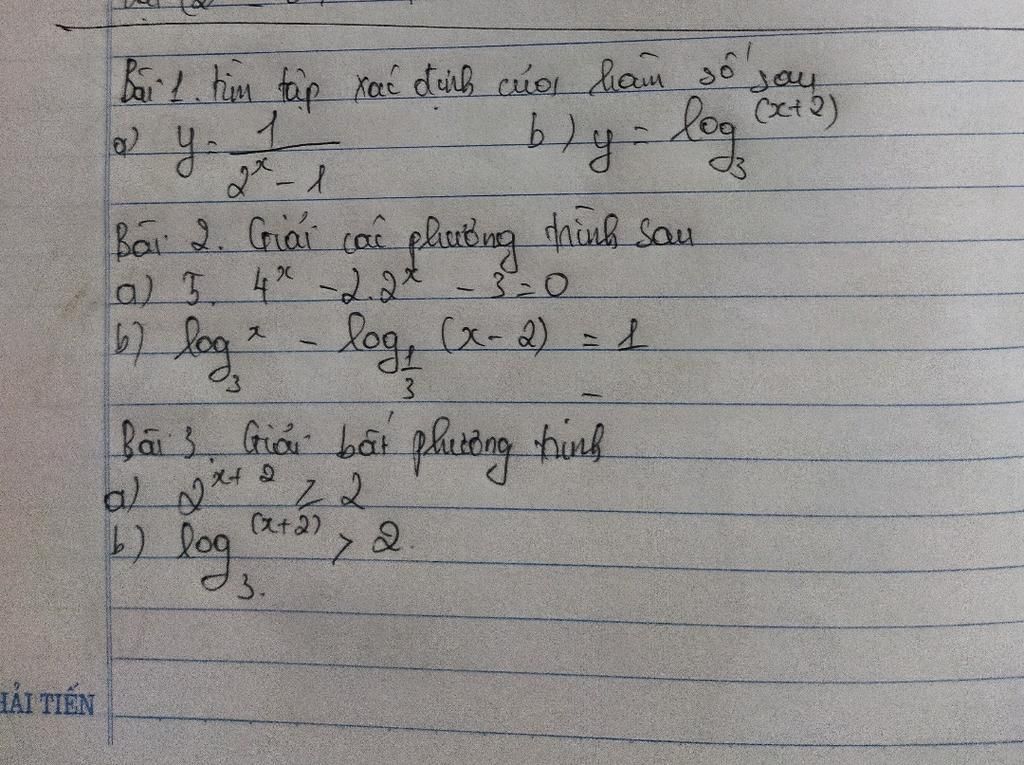 Bài 1. tìm tập xác định của hàm số sau
a) y = 1/(2^x - 1) b) y = log_3 (x+2)
Bài 2. Giải các phương trình sau
a) 5. 4^x - 2.2^x - 3 = 0
b) log_3 x - log_{1/3} (x - 2) = 1
Bài 3. Giải bất phương trình
a) 2^{x+2} ≥ 2
b) log_3 (x+2) > 2.
HẢI TIẾN